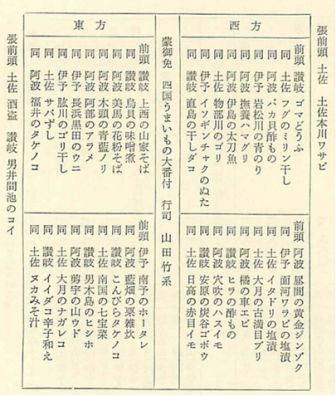 張前頭 土佐 土佐本川ワサビ
西方
前頭 讃岐 ゴマどうふ
同 土佐 フグのミリン干し
同 阿波 バカ貝酢もの
同 伊予 岩松川の青のり
同 阿波 撫養ハマグリ
同 阿波 伊島の太刀魚
同 土佐 物部川のゴリ
同 伊予 イソギンチャクのぬた
同 讃岐 直島の干しダコ
前頭 阿波 昼間の黄金ジンゾク
同 伊予 面河ワラビの塩漬
同 土佐 イタドリの塩漬
同 土佐 大月の古満目ブリ
同 阿波 橘の車エビ
同 讃岐 ヒラの酢もの
同 阿波 穴吹のハスイモ
同 讃岐 安原の炭谷ゴボウ
同 土佐 日高の赤目イモ
蒙御免 四国うまいもの大番付 行司 山田竹系
東方
前頭 讃岐 上西の山家そば
同 讃岐 烏貝の味噌煮
同 阿波 美馬の花粉そば
同 阿波 木頭の青藍ノリ
同 阿波 阿部のアラメ
同 伊予 長浜黒田のウニ
同 伊予 肱川のゴリ干し
同 土佐 サバずし
同 阿波 福井のタケノコ
前頭 伊予 南予のホータレ
同 阿波 藍畑の粟雑炊
同 讃岐 こんぴらタケノコ
同 土佐 南国の七宝菜
同 讃岐 男木島のヒシホ
同 土佐 大月のナガレコ
同 阿波 剪宇の山ウド
同 讃岐 イイダコ辛子和え
同 土佐 ヌカみそ汁
張前頭 土佐 酒盗 讃岐 男井間池のコイ